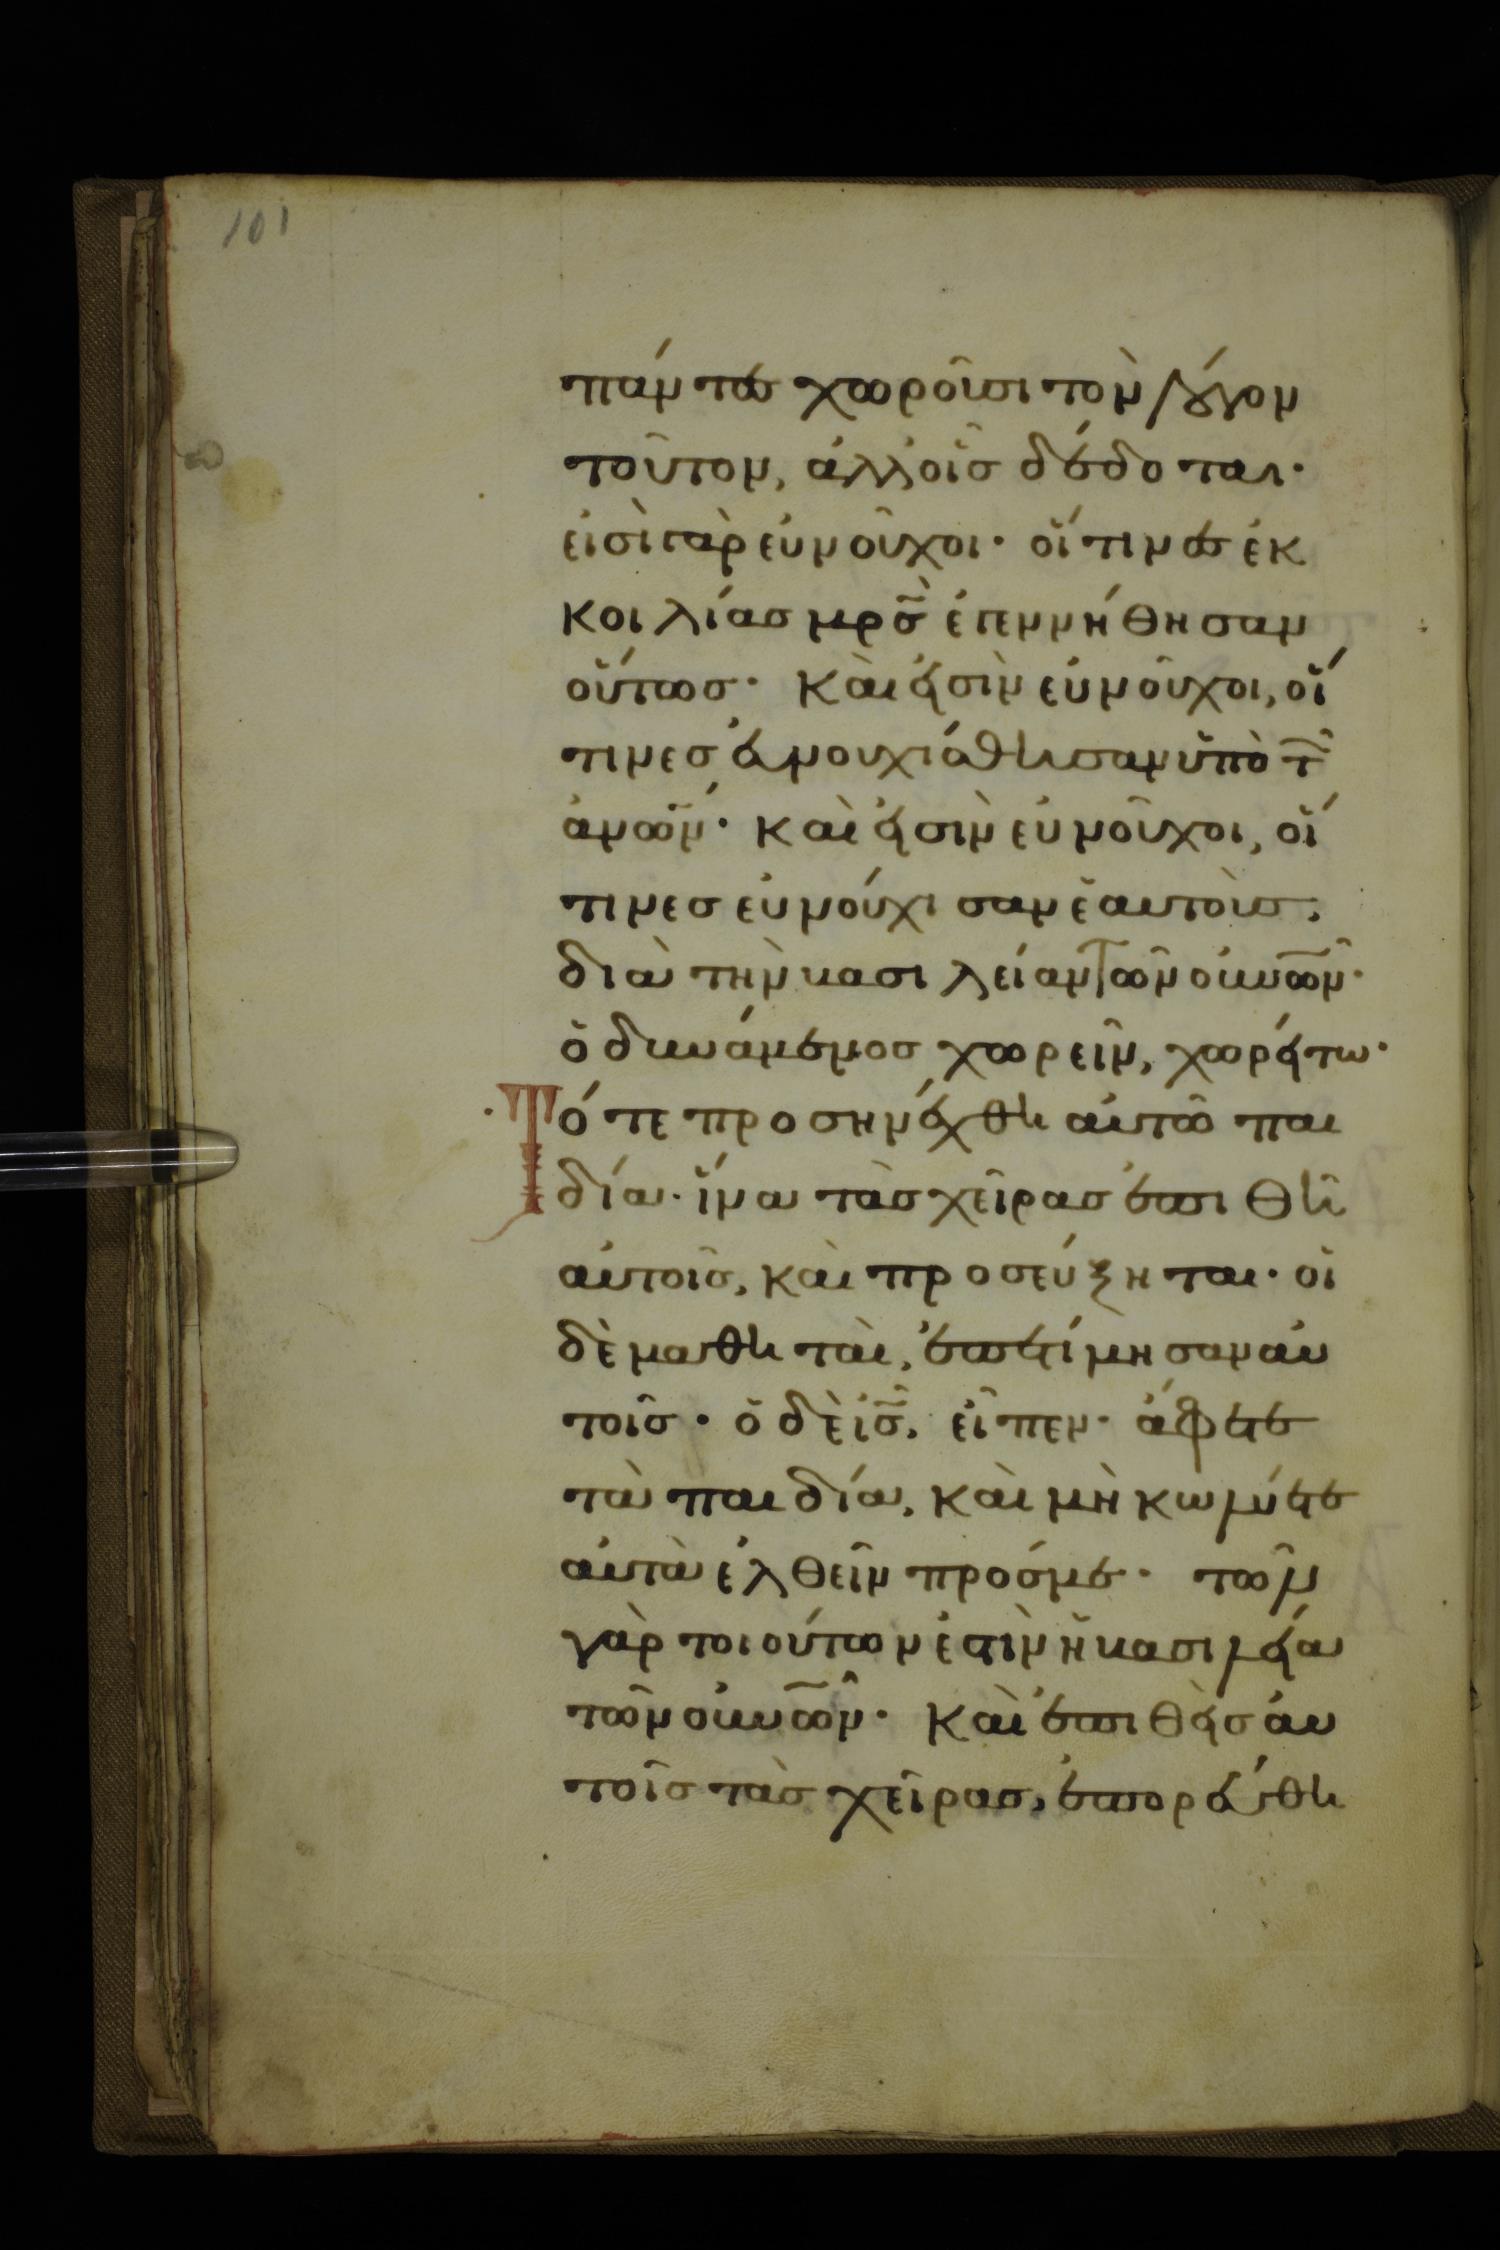 101
πάντες χωροῦσι τὸν λόγον
τοῦτον, ἀλλ οἷς δέδοται·
εἰσὶ γὰρ εὐνοῦχοι· οἵτινες ἐκ
κοιλίας μρ̅ς ἐγεννήθησαν
οὕτως· καὶ εἰσὶν εὐνοῦχοι, οἵ
τινες εὐνουχίσθησαν ὑπὸ τῶν
ἀνω̅ν· καὶ εἰσὶν εὐνοῦχοι, οἵ
τινες εὐνούχισαν ἑαυτοὺς,
διὰ τὴν βασιλείαν τῶν ουνω̅ν·
ὁ δυνάμενος χωρεῖν, χωρείτω·
Τότε προσηνέχθη αὐτῶ παι
δία· ἵνα τὰς χεῖρας ἐπιθῆ
αὐτοῖς, καὶ προσεύξηται· οἱ
δὲ μαθηταὶ, ἐπετίμησαν αὐ
τοῖς· ὁ δὲ ι̅ς, εἶπεν· ἄφετε
τὰ παιδία, καὶ μὴ κωλύετε
αὐτὰ ἐλθεῖν πρόσμε· τῶν
γὰρ τοιούτων ἐστὶν ἡ βασιλεία
τῶν ουνω̅ν· καὶ ἐπιθεὶς αὐ
τοῖς τὰς χεῖρας, ἐπορεύθη